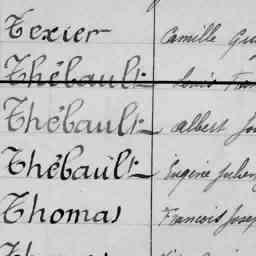 Texier Camille
Thébault Louis
Thébault Albert
Thébault Eugène
Thomas François